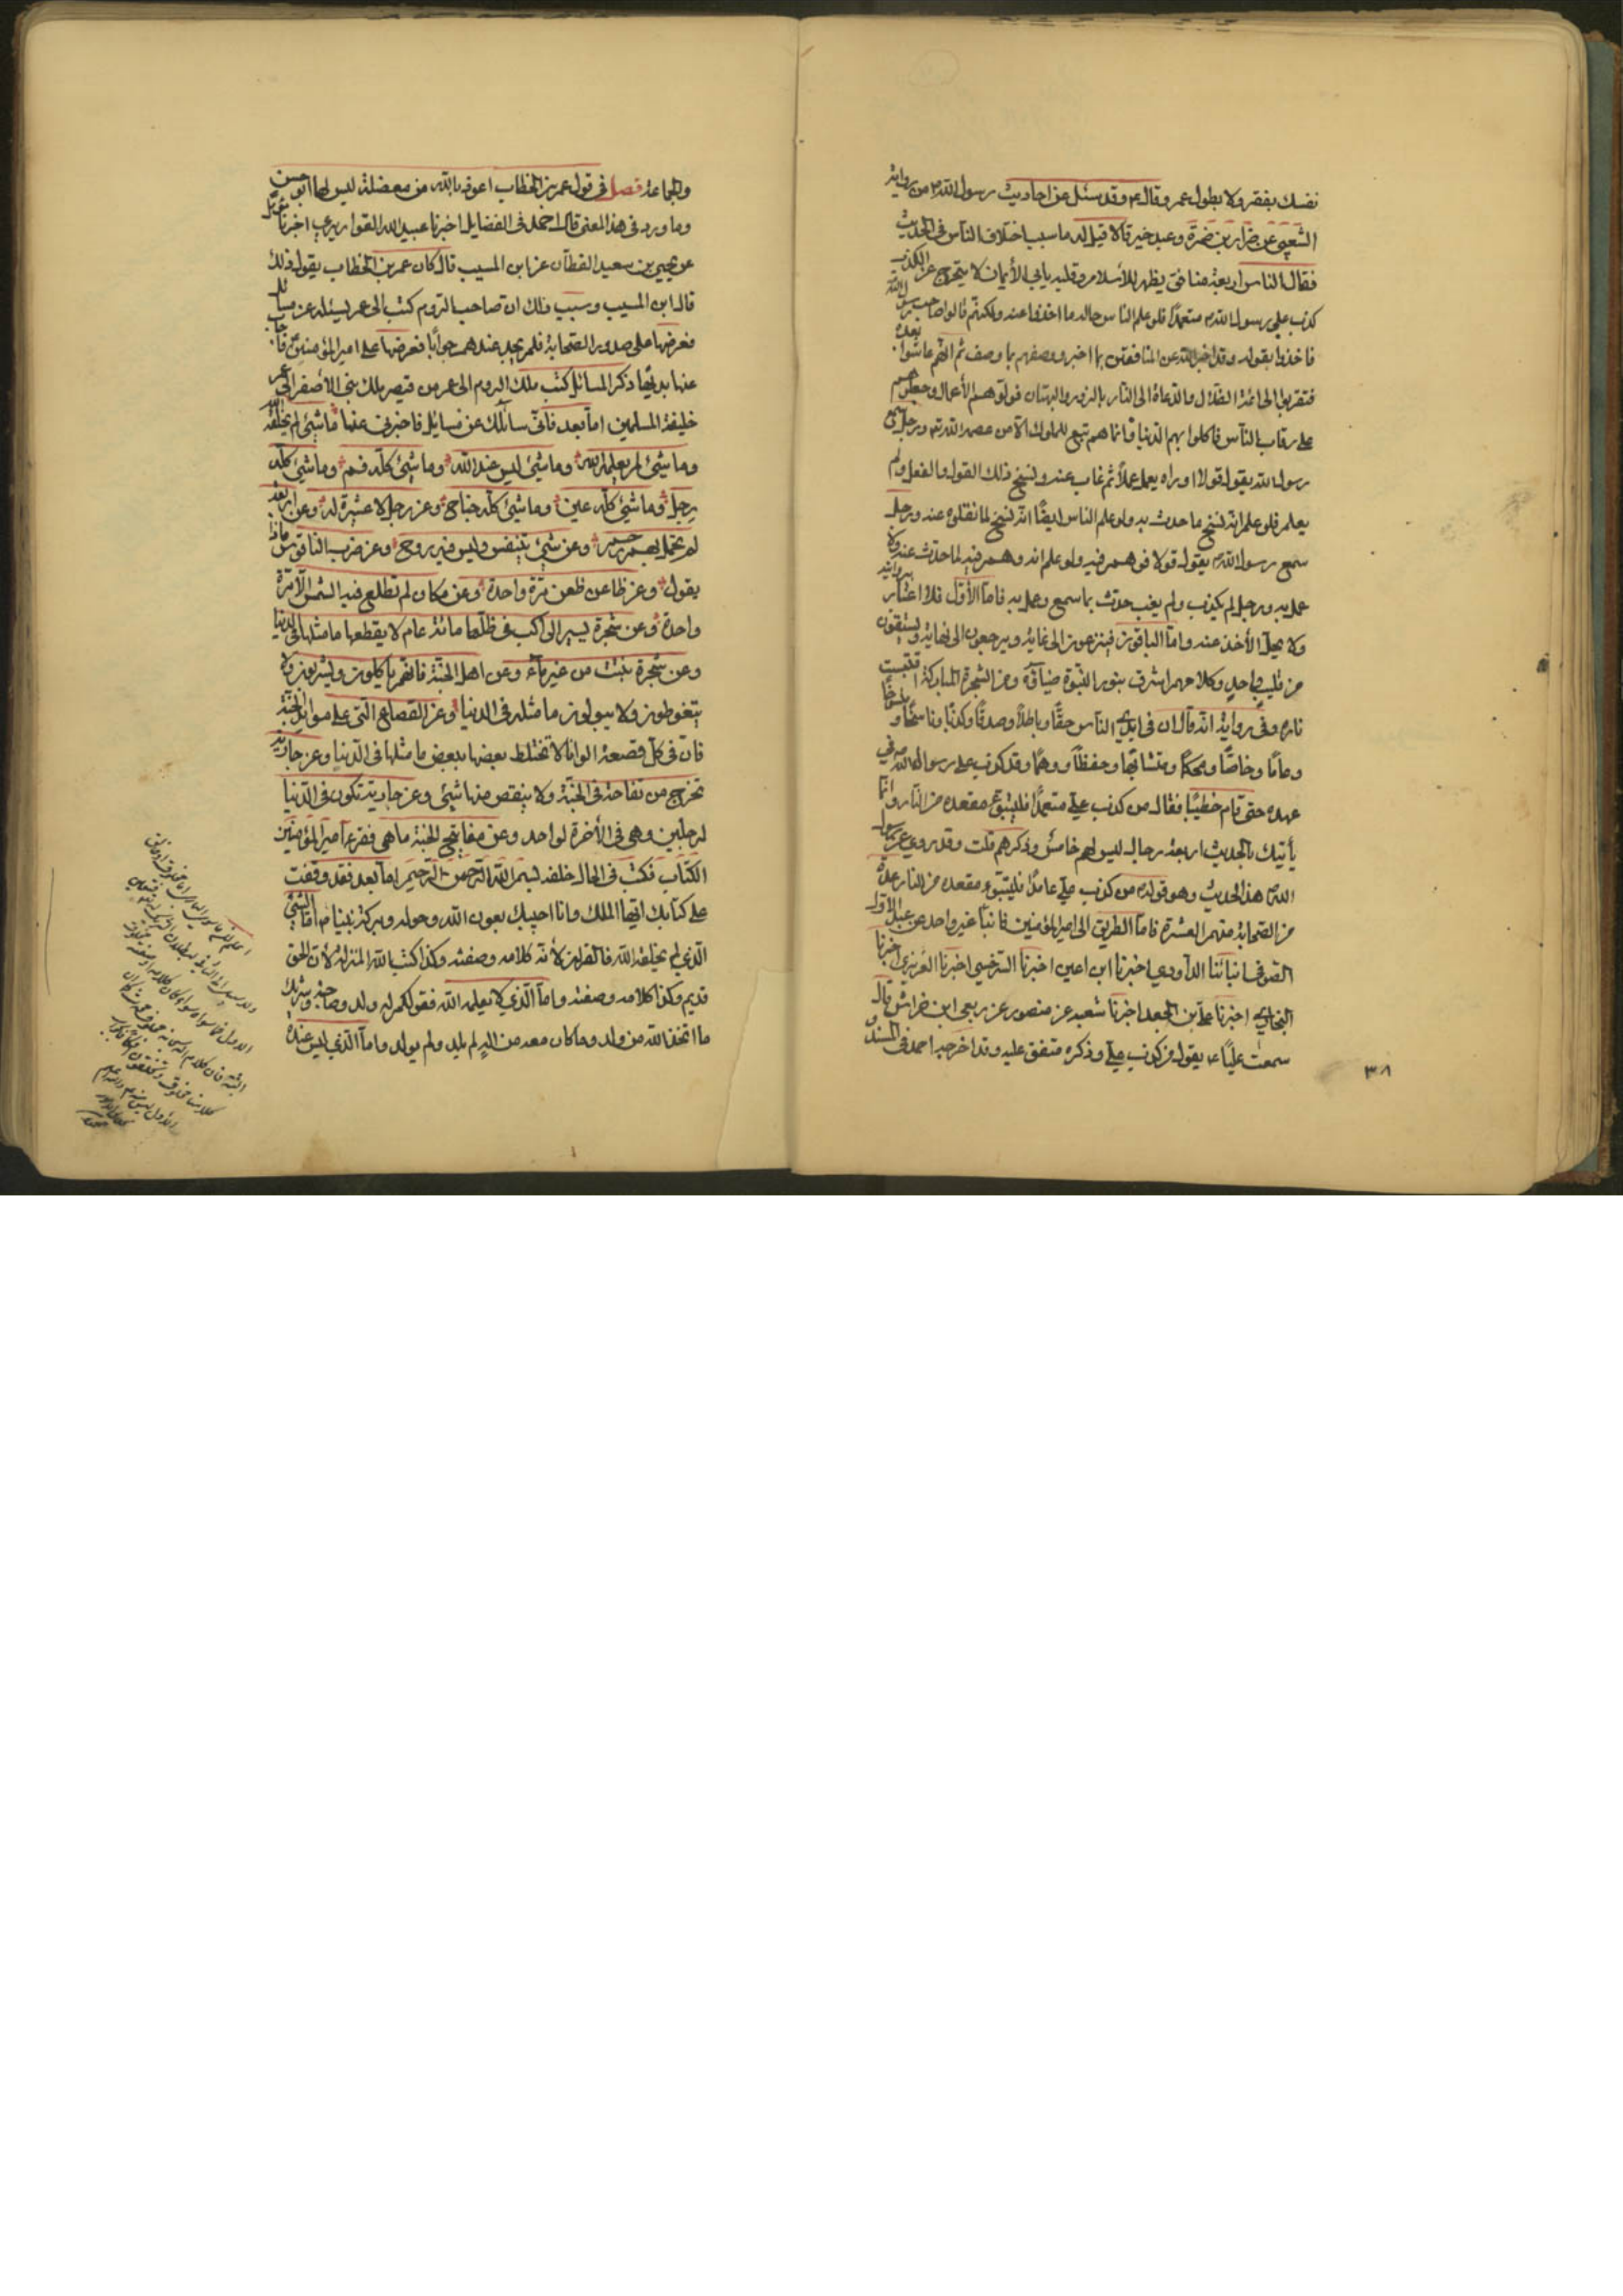 نفسك بفقر ولا بطول عمر وقال ع وقد سئل عن احاديث رسول الله ص من رواية
الشعبي عن ضرار بن ضمرة وعبد خير قالا قيل له ما سبب اختلاف الناس في الحديث
فقال الناس اربعة منافق يظهر للاسلام وقلبه يأبى الأيمان لا يتحرج عن الكذب
كذب على رسول الله ص متعمدًا فلو علم الناس حاله ما اخذوا عنه ولكنهم قالوا صاحب رسول الله
فاخذوا بقوله وقد اخبر الله عن المنافقين بما اخبر ووصفهم بما وصف ثم انهم عاشوا بعده
فتقربوا الى ائمة الضلال والدعاة الى النار بالزور والبهتان فولوهم الأعمال وجعلوهم
على رقاب الناس فاكلوا بهم الدنيا وانما هم تبع للملوك الا من عصمه الله تع ورجل سمع
رسول الله يقول قولا او راه يعمل عملًا ثم غاب عنه ونسخ ذلك القول والفعل ولم
يعلم فلو علم انه نسخ ما حدث به ولو علم الناس ايضًا انه نسخ لما نقلوه عنه ورجل
سمع رسول الله ص يقول قولا فوهم فيه ولو علم انه وهم فيه لما حدث عنه ولا
عمل به ورجل لم يكذب ولم يغب حدث بما سمع وعمل به فاما الأوّل فلا اعتبار بروايته
ولا يحل الأخذ عنه واما الباقون فينزعون الى غاية ويرجعون الى نهاية ويستقون
من قليب واحد وكلامهم اشرق بنور النبوة ضياؤه ومن الشجرة المباركة اقتبست
ناره وفي رواية انه قال ان في ايدي الناس حقًا وباطلًا وصدقًا وكذبًا وناسخًا ومنسوخًا
وعامًا وخاصًا ومحكمًا ومتشابهًا وحفظًا ووهمًا وقد كذب على رسول الله ص في
عهده حتى قام خطيبًا فقال من كذب علي متعمدًا فليتبوء مقعده من النار وانما
يأتيك بالحديث اربعة رجال ليس لهم خامس وذكرهم قلت وقد روى عن رسول
الله ص هذا الحديث وهو قوله من كذب علي عامدًا فليتبوء مقعده من النار عدة
من الصحابة منهم العشرة فاما الطريق الى امير المؤمنين فانبأ غير واحد عن عبد الاول
الصوفي انبأنا الداودي اخبرنا ابن اعين اخبرنا السرخسي اخبرنا الفربري اخبرنا
البخاري اخبرنا علي بن الجعد اخبرنا شعبة عن منصور عن ربعي ابن خراش قال
سمعت عليًا ع يقول من كذب علي وذكره متفق عليه وقد اخرجه احمد في المسند و
٣٨
والجماعة فصل في قول عمر بن الخطاب اعوذ بالله من معضلة ليس لها ابو حسن
وما ورد في هذا المعنى قال احمد في الفضايل اخبرنا عبيد الله القواريري اخبرنا مؤمل
عن يحيى بن سعيد القطان عن ابن المسيب قال كان عمر بن الخطاب يقول ذلك
قال ابن المسيب وسبب ذلك ان صاحب الروم كتب الى عمر يسئله عن مسائل
فعرضها على صدور الصحابة فلم يجد عندهم جوابًا فعرضها على امير المؤمنين فاجاب
عنها بديهًا ذكر المسائل كتب ملك الروم الى عمر من قيصر ملك بني الأصفر الى عمر
خليفة المسلمين اما بعد فاني سائلك عن مسايل فاخبرني عنها ما شيئ لم يخلقه الله
وما شيئ لم يعلمه الله وما شيئ ليس عند الله وما شيئ كله فم وما شيئ كله
رجل وما شيئ كله عين وما شيئ كله جناح وعن رجل لا عشيرة له وعن اربعة
لم تحمل بهم رحم وعن شيئ يتنفس وليس فيه روح وعن ضرب الناقوس ماذا
يقول وعن ظاعن ظعن مرة واحدة وعن مكان لم تطلع فيه الشمس الا مرة
واحدة وعن شجرة يسير الراكب في ظلها مائة عام لا يقطعها ما مثلها في الدنيا
وعن شجرة نبتت من غير ماء وعن اهل الجنة فانهم ياكلون ويشربون ولا
يتغوطون ولا يبولون ما مثلهم في الدنيا وعن القصاع التي على موايد الجنة
فان في كل قصعة الوانا لا تختلط بعضها ببعض ما مثلها في الدنيا وعن جارية
تخرج من تفاحة في الجنة ولا ينقص منها شيئ وعن جارية تكون في الدنيا
لرجلين وهي في الأخرة لواحد وعن مفاتيح الجنة ما هي فقرء امير المؤمنين
الكتاب فكتب في الحال خلفه بسم الله الرحمن الرحيم اما بعد فقد وقفت
على كتابك ايها الملك وانا اجيبك بعون الله وحوله وبركة نبينا ص اما الشيئ
الذي لم يخلقه الله فالقران لأنه كلامه وصفته وكذا كتب الله المنزلة لأن الحق
قديم وكذا كلامه وصفته واما الذي لا يعلمه الله فقولكم له ولد وصاحبة وشريك
ما اتخذ الله من ولد وما كان معه من اله لم يلد ولم يولد واما الذي ليس عنده